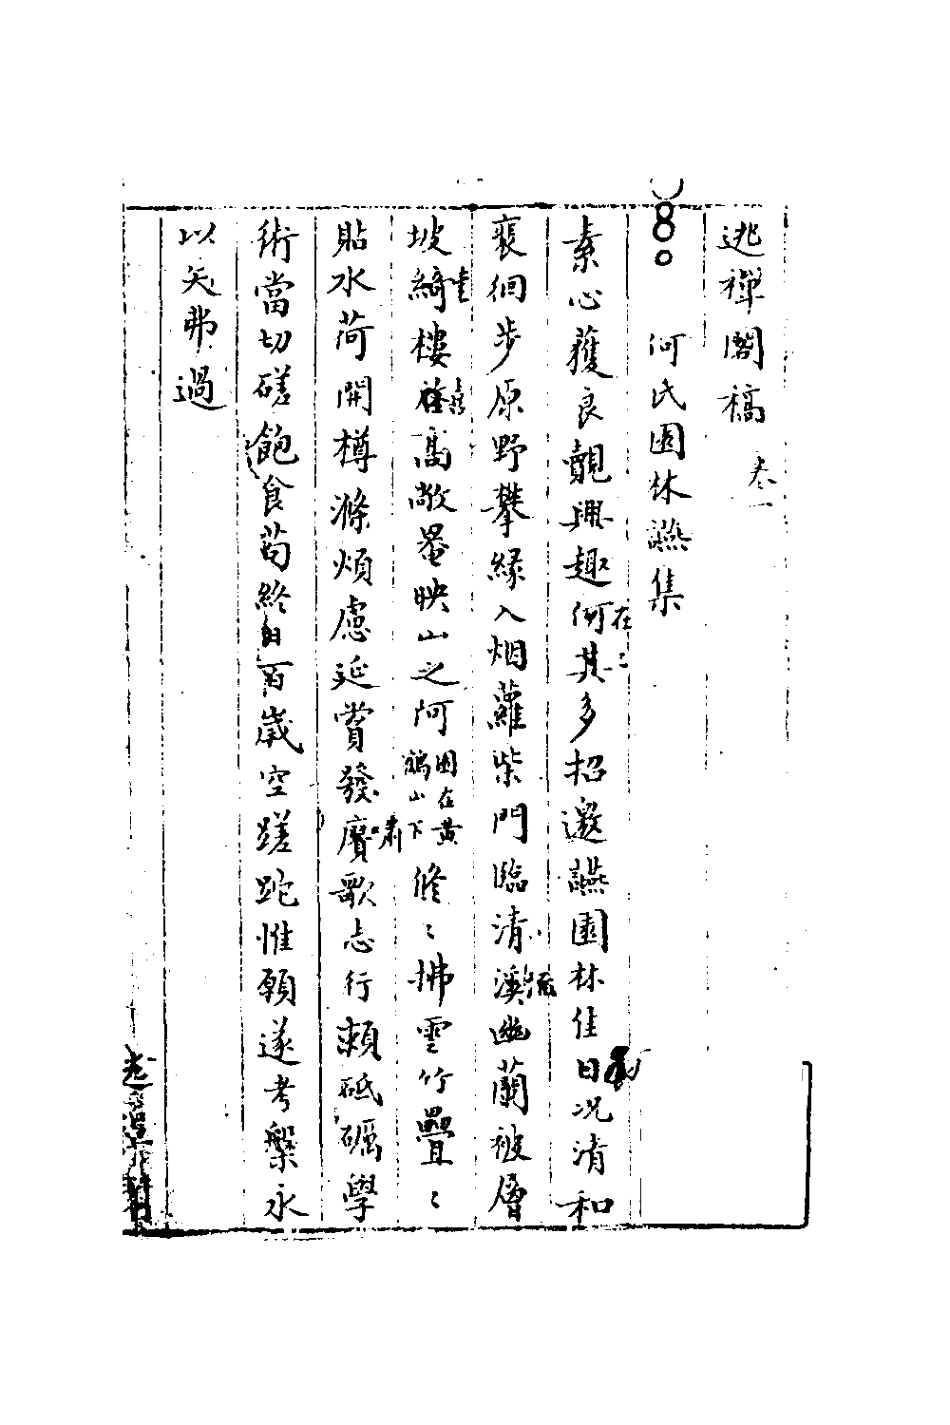 逃禪閣稿 卷一
何氏園林讌集
素心獲良覿興趣何其多招邀讌園林佳日况清和
裵徊步原野攀緣入烟蘿柴門臨清溪幽蘭被層
坡綺樓高敞晷映山之阿園在黃鶴山下修〻拂雲竹疊〻
貼水荷開樽滌煩慮延賞發賡歌志行賴砥礪學
術當切磋飽食苟終日百歲空蹉跎惟願遂考槃永
以矢弗過